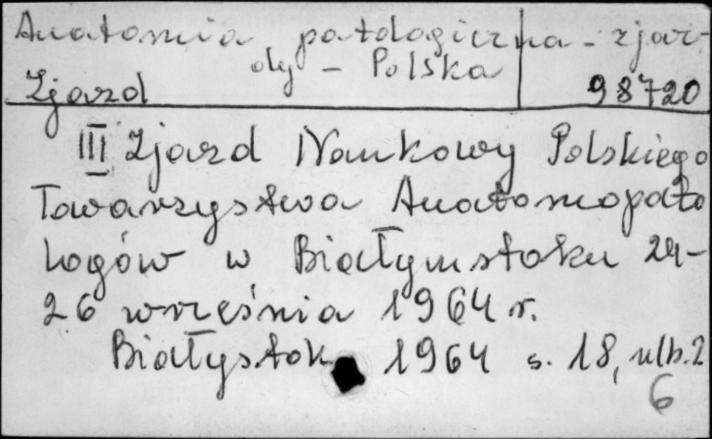 Anatomia patologiczna - zjaz-
dy - Polska
Zjazd 98720
III Zjazd Naukowy Polskiego
Towarzystwa Anatomopato
logów w Białymstoku 24-
26 września 1964 r.
Białystok 1964 s. 18, nlb. 2
6